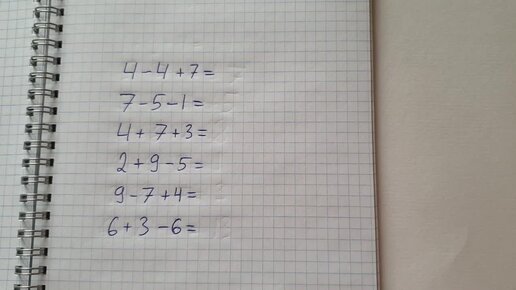 4-4+7=
7-5-1=
4+7+3=
2+9-5=
9-7+4=
6+3-6=